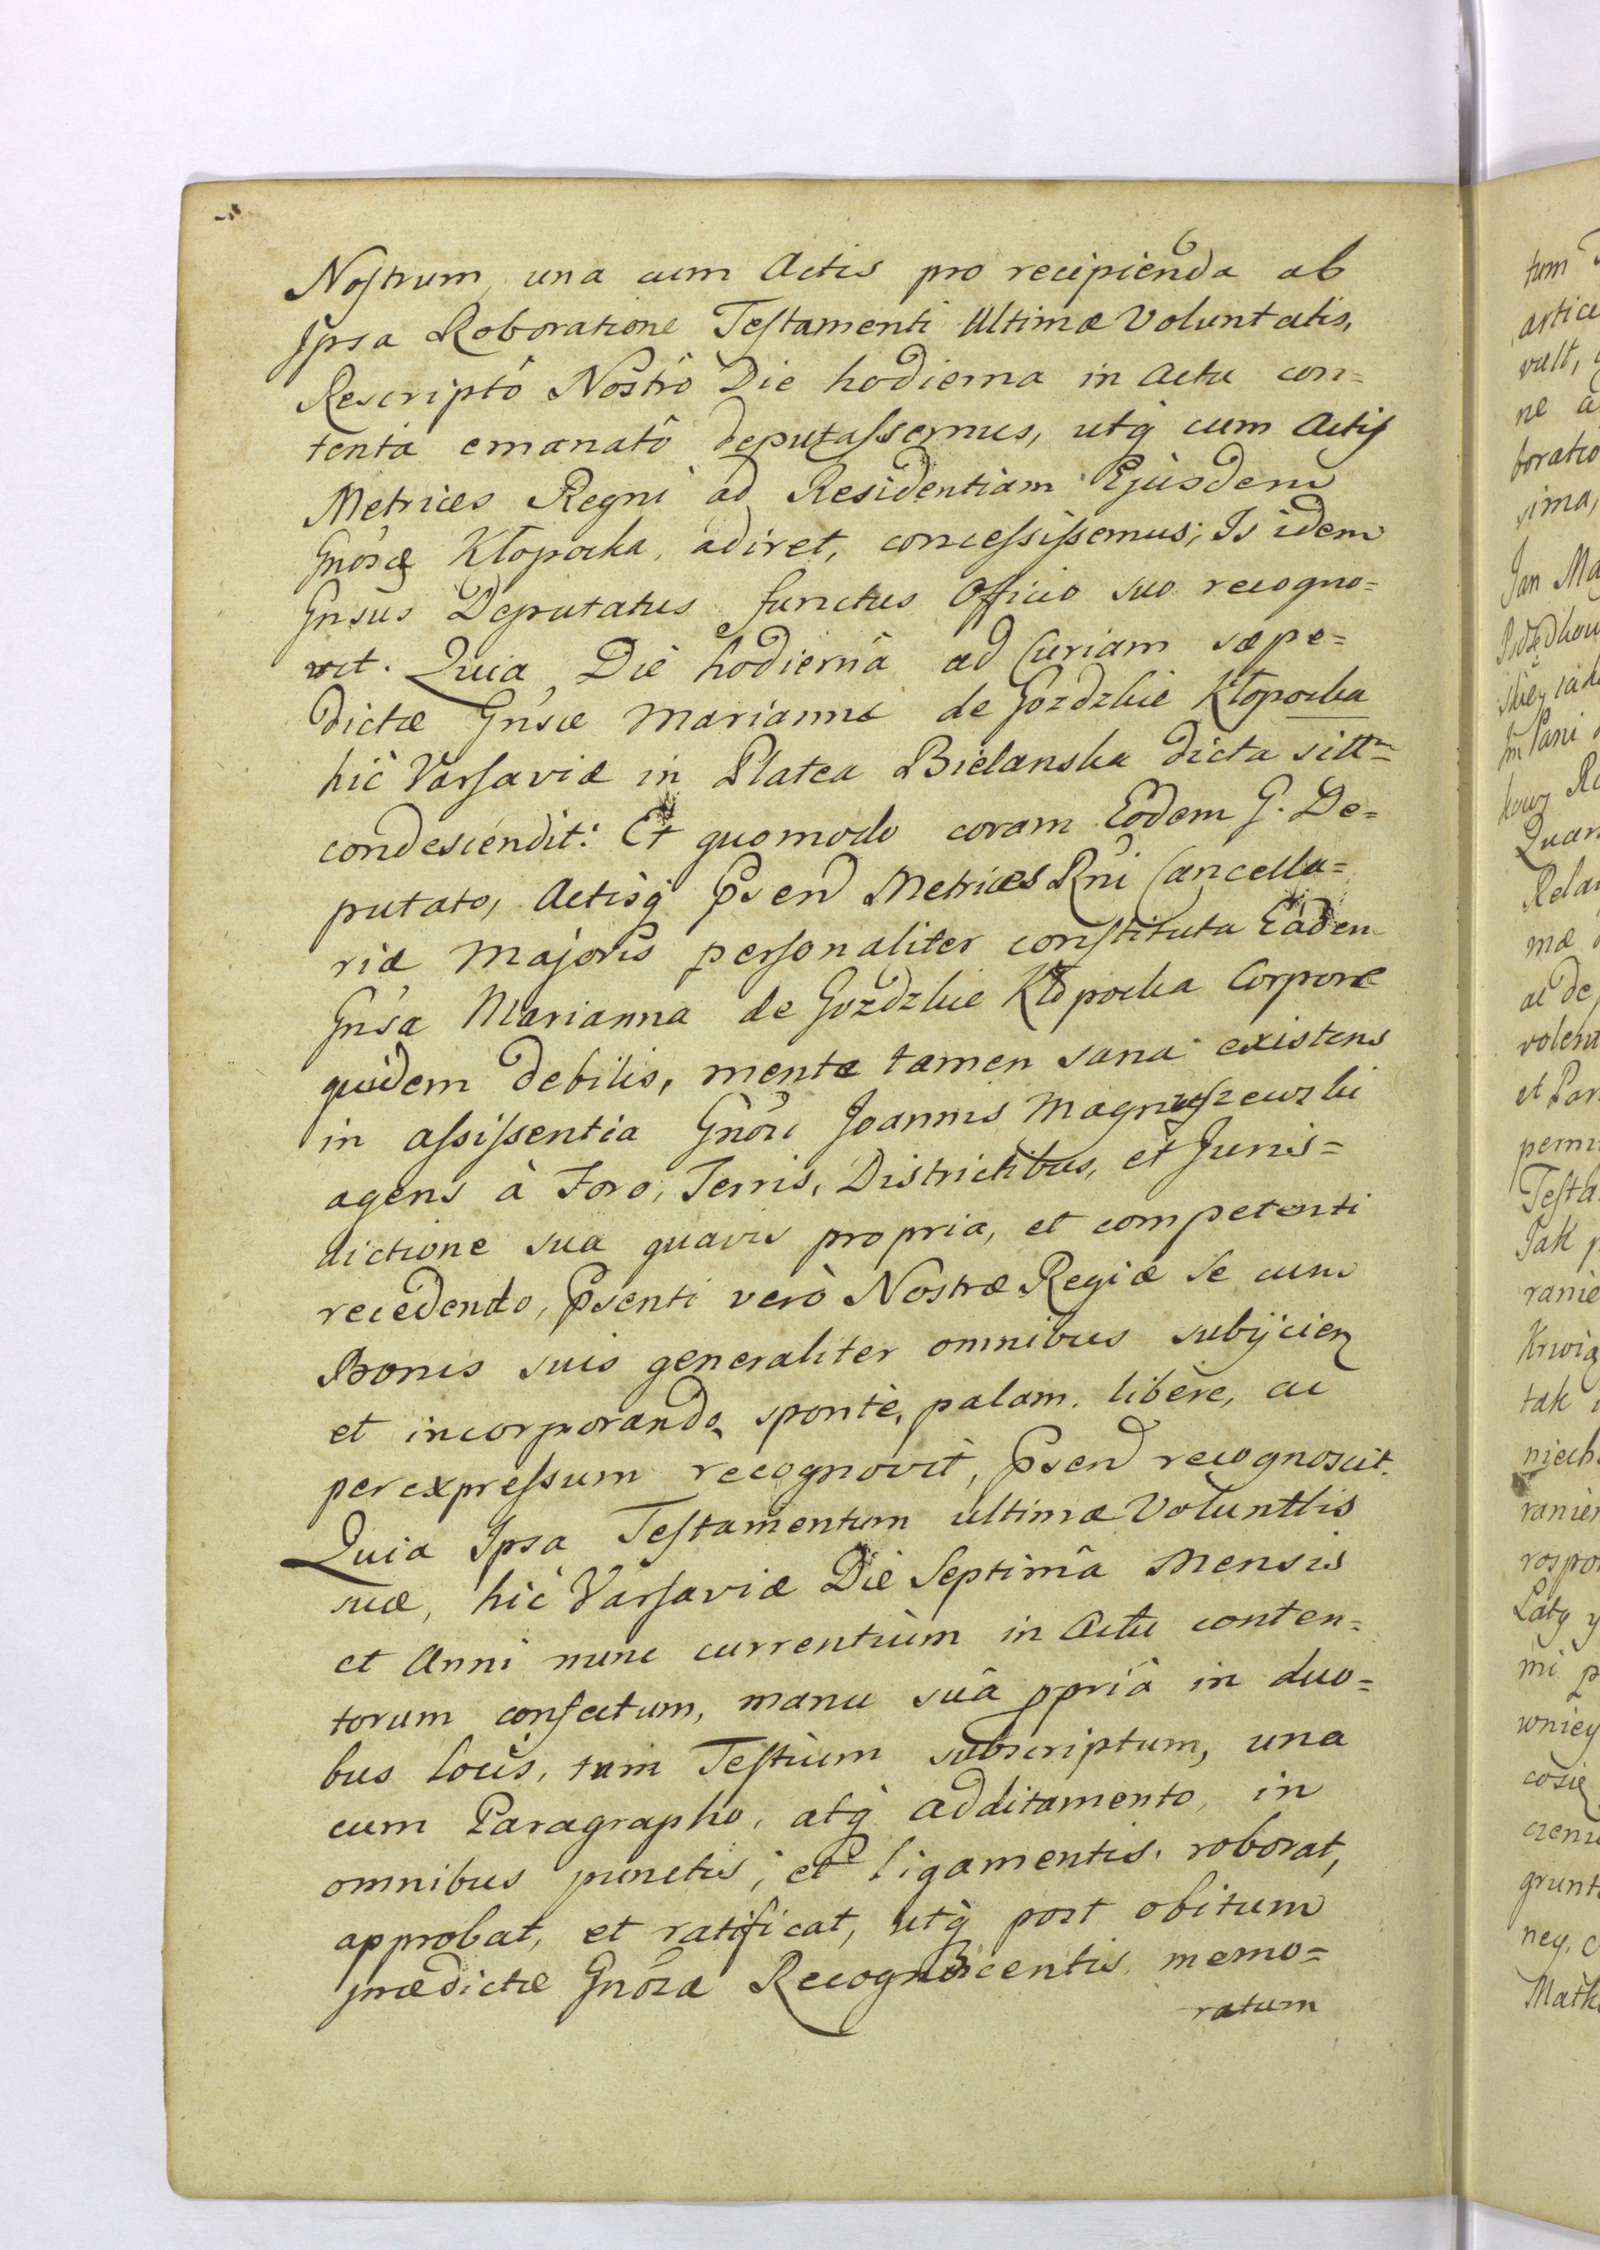 Nostrum, una cum Actis pro recipienda ab
Ipsa Roboratione Testamenti Ultimæ Voluntatis,
Rescriptô Nostrô Die hodierna in Actu con=
tenta emanatô deputassemus, utq́ cum Actis
Metrices Regni ad Residentiam Ejusdem
Gnosæ Kłopocka, adiret, concessissemus; Is idem
Gnsus Deputatus functus Officio suo recogno=
vit. Quia Die hodiernâ ad Curiam sæpe=
dictæ Gnsæ Mariannæ de Gozdzkie Kłopocka
hic Varsaviæ in Platea Bielanska dicta sittm=
condescendit: Et quomodo coram Eodem G. De=
putato, Actisq́ Psend Metrices Rni Cancella=
riæ Majoris personaliter constituta Eadem
Gnsa Marianna de Gozdzkie Kłopocka Corpore
quidem debilis, mente tamen sana existens
in assissentia Gnosi Joannis Magnuszewski
agens à Foro, Terris, Districtibus, et Juris=
dictione sua quavis propria, et competenti
recedendo, Psenti verò Nostræ Regiæ se cum
Bonis suis generaliter omnibus subijcien
et incorporando, sponte, palam, libère, ac
per expressum recognovit, Psend recognoscit.
Quia Ipsa Testamentum ultimæ Volunttis
suæ, hic Varsaviæ Die Septimâ Mensis
et Anni nunc currentium in Actu conten=
torum confectum, manu suâ ppriâ in duo=
bus locis, tum Testium subscriptum, una
cum Paragrapho, atq́ additamento, in
omnibus punctis, et ligamentis, roborat,
approbat, et ratificat, utq́ post obitum
prædictæ Gnosæ Recognoscentis, memo=
ratum